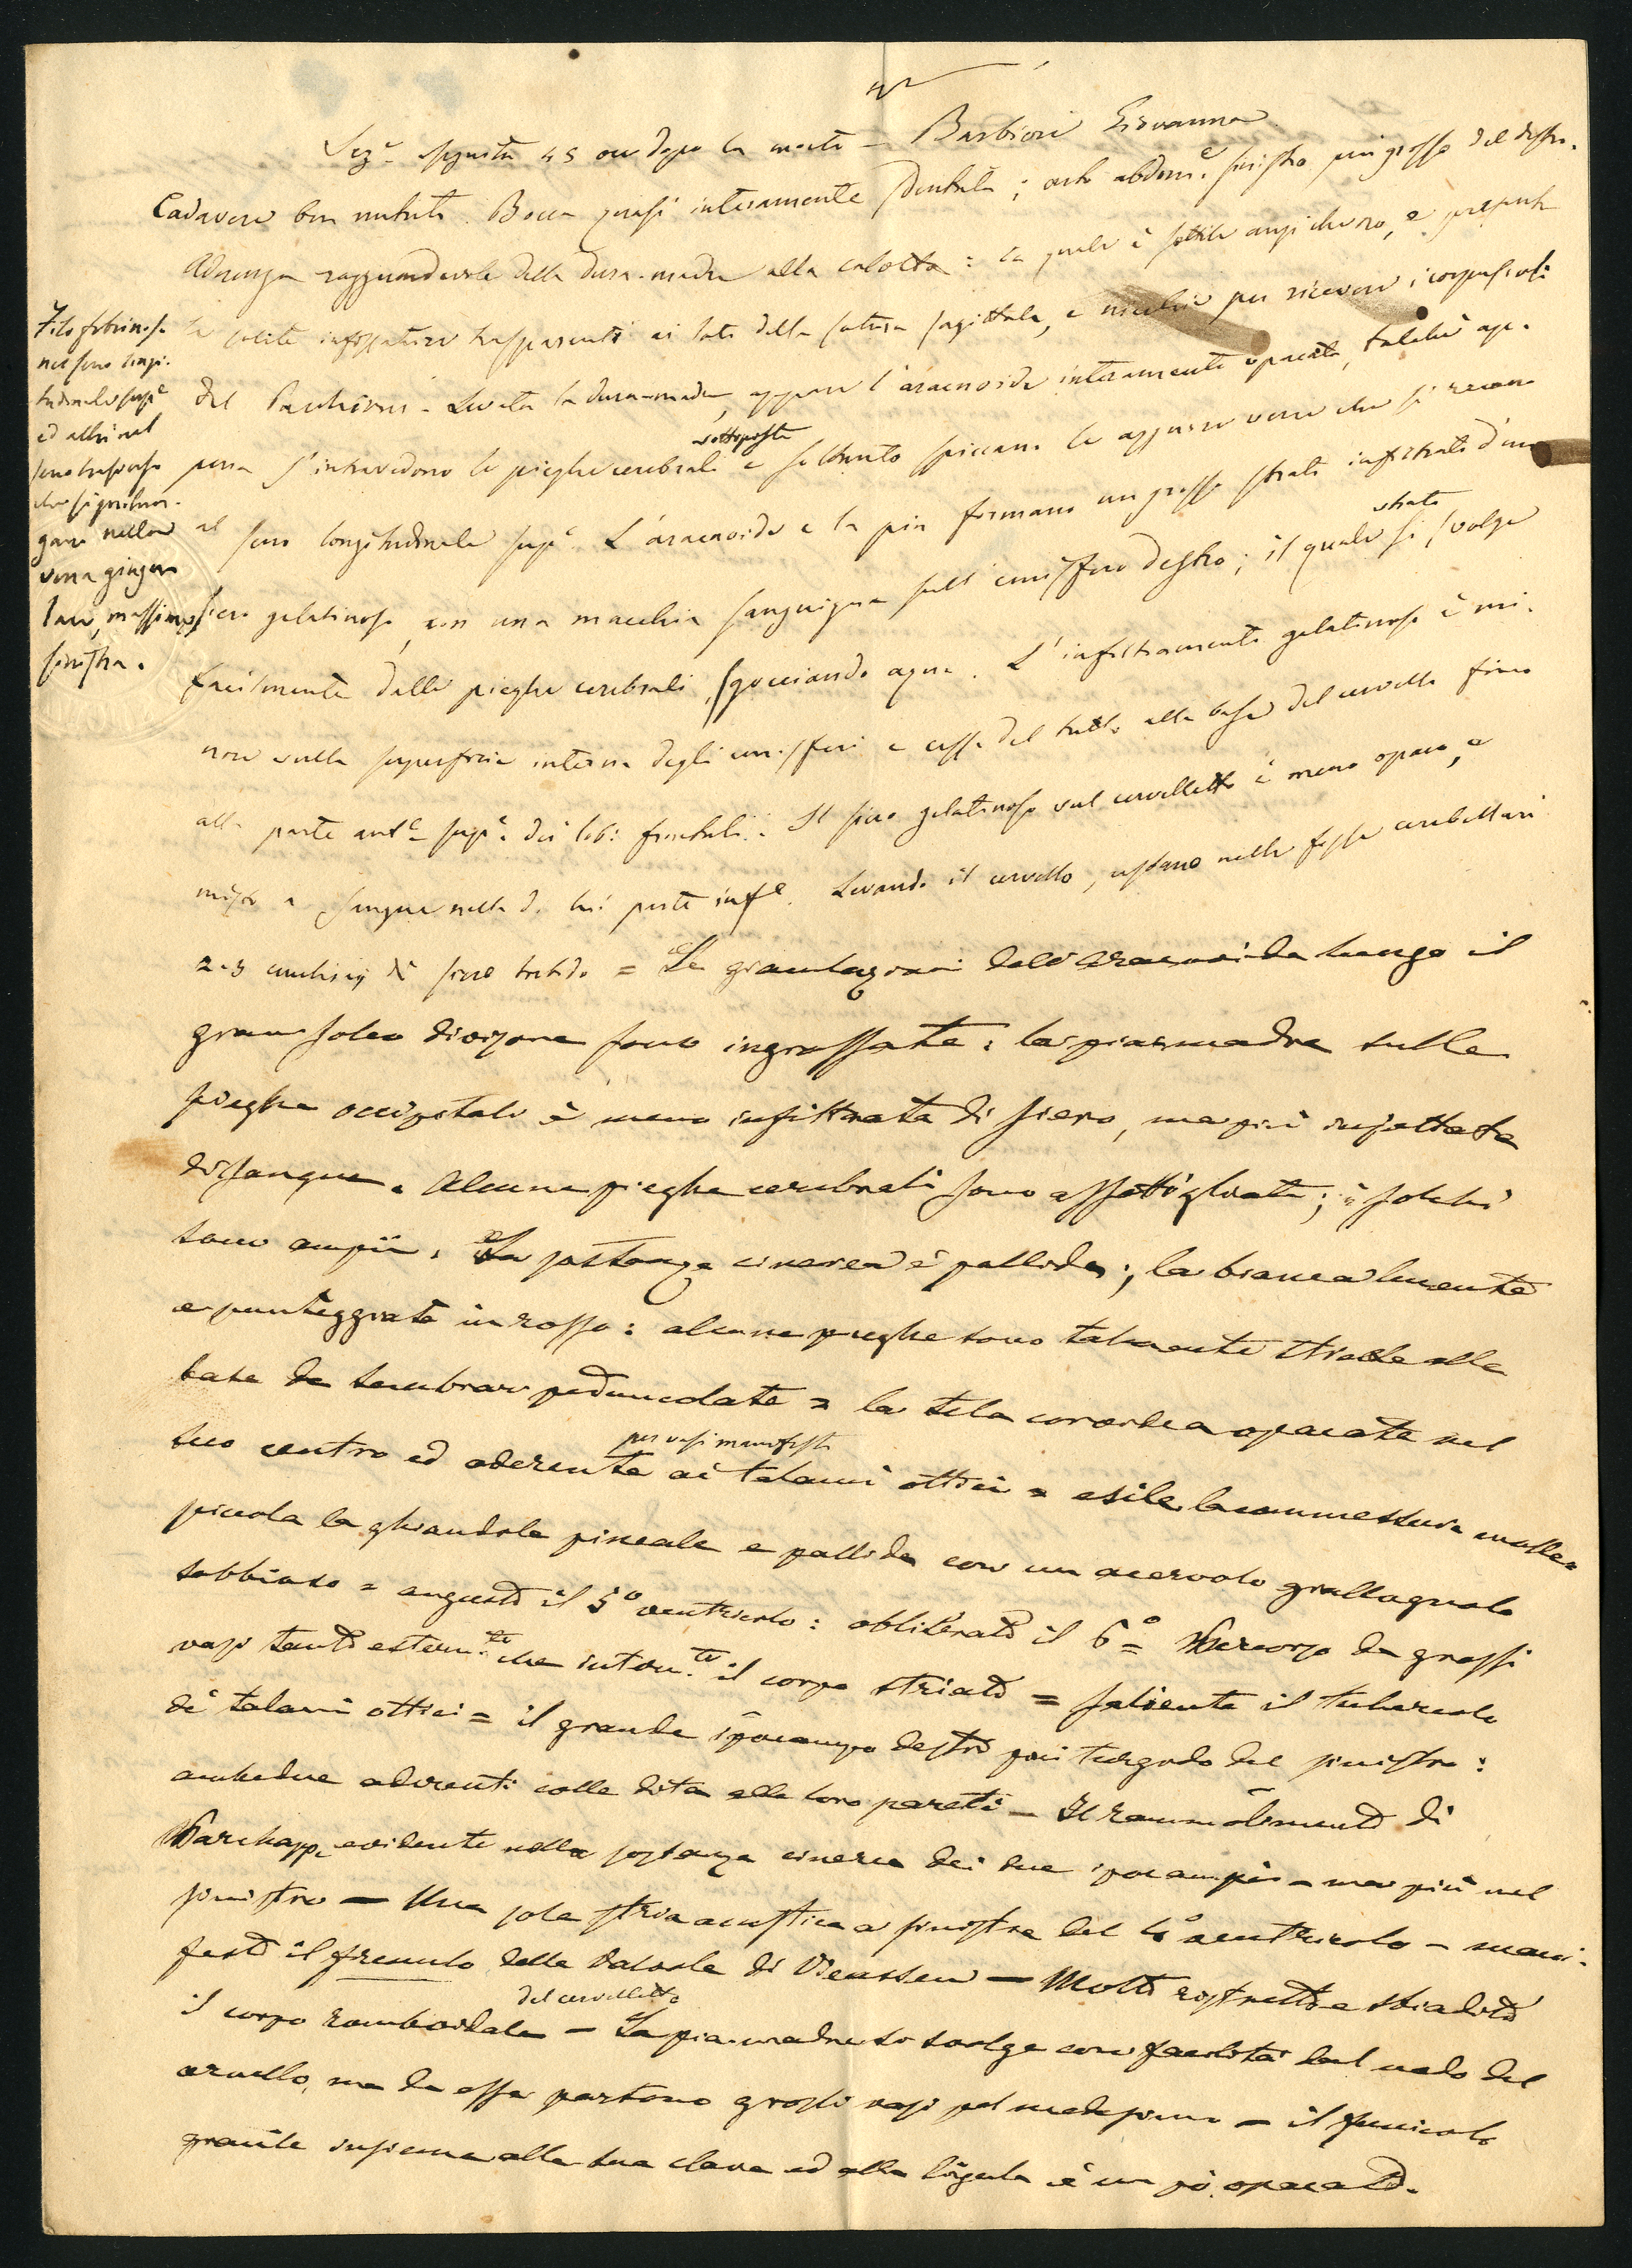 Sez.e eseguita 45 ore dopo la morte – Barbieri Giovanna
Cadavere ben nutrito. Bocca quasi interamente sdentata; arto addom.e sinistro più grosso del destro.
Aderenza ragguardevole della dura-madre alla calotta: la quale è sottile anzi che no, e presenta
le solite infossature trasparenti ai lati della sutura sagittale, e nicchie per ricevere i corpuscoli
del Pacchioni – Levata la dura-madre, appare l'aracnoide interamente opacata, talchè ap-
pena s'intravedono le pieghe cerebrali sottoposte e soltanto spiccano le azzurre vene che si recano
al seno longitudinale sup.e L'aracnoide e la pia formano un grosso strato infiltrato d'un
siero gelatinoso, con una macchia sanguigna sull'emisfero destro; il quale strato si svolge
facilmente dalle pieghe cerebrali, sgocciando acqua. L'infiltramento gelatinoso è mi-
nore sulla superficie interna degli emisferi e cessa del tutto alla base del cervello fino
alla parte ant.e sup.e dei lobi frontali. Il siero gelatinoso sul cervelletto è meno opaco, e
misto a sangue nella di lui parte inf.e Levando il cervello, restano nelle fosse cerebellari
2-3 cucchiaj di siero torbido = Le granulazioni dell'aracnoide lungo il
gran solco divisore sono ingrossate: la pia madre sulle
pieghe occipitali è meno infiltrata di siero, ma più injettata
di sangue. Alcune pieghe cerebrali sono assottigliate; i solchi
sono ampii. La sostanza cinerea è pallida; la bianca lucente
e punteggiata in rosso: alcune pieghe sono talmente strette alla
base da sembrare peduncolate = la tela coroidea opacata nel
suo centro ed aderente per vasi manifesti ai talami ottici = esile la commessura molle =
piccola la ghiandola pineale e pallida con un acervolo giallognolo
sabbioso = angusto il 5º ventricolo: obliterato il 6º = percorso da grossi
vasi tanto estern.te che intern.te il corpo striato = saliente il tubercolo
dei talami ottici = il grande ippocampo destro più turgido del sinistro:
ambedue aderenti colle dita alle loro pareti – Il rammolimento di
Parchappe evidente nella sostanza cinerea dei due ippocampi – ma più nel
sinistro – Una sola stria acustica a sinistra del 4º ventricolo – mani-
festo il frenulo della valvola di Vieussen – Molto ristretto e sbiadito
il corpo romboidale del cervelletto – La pia-madre si svolge con facilità dal nodo del
cervello, ma da essa partono grossi vasi pel medesimo – il funicolo
gracile insieme alla sua clava ed alla lingula è un pò opacato.
Filo fibrinoso
nel seno longi-
tudinale sup.e
ed altri nel
seno trasverso
che si prolun-
gano nella
vena giugu-
lare, massime
sinistra.